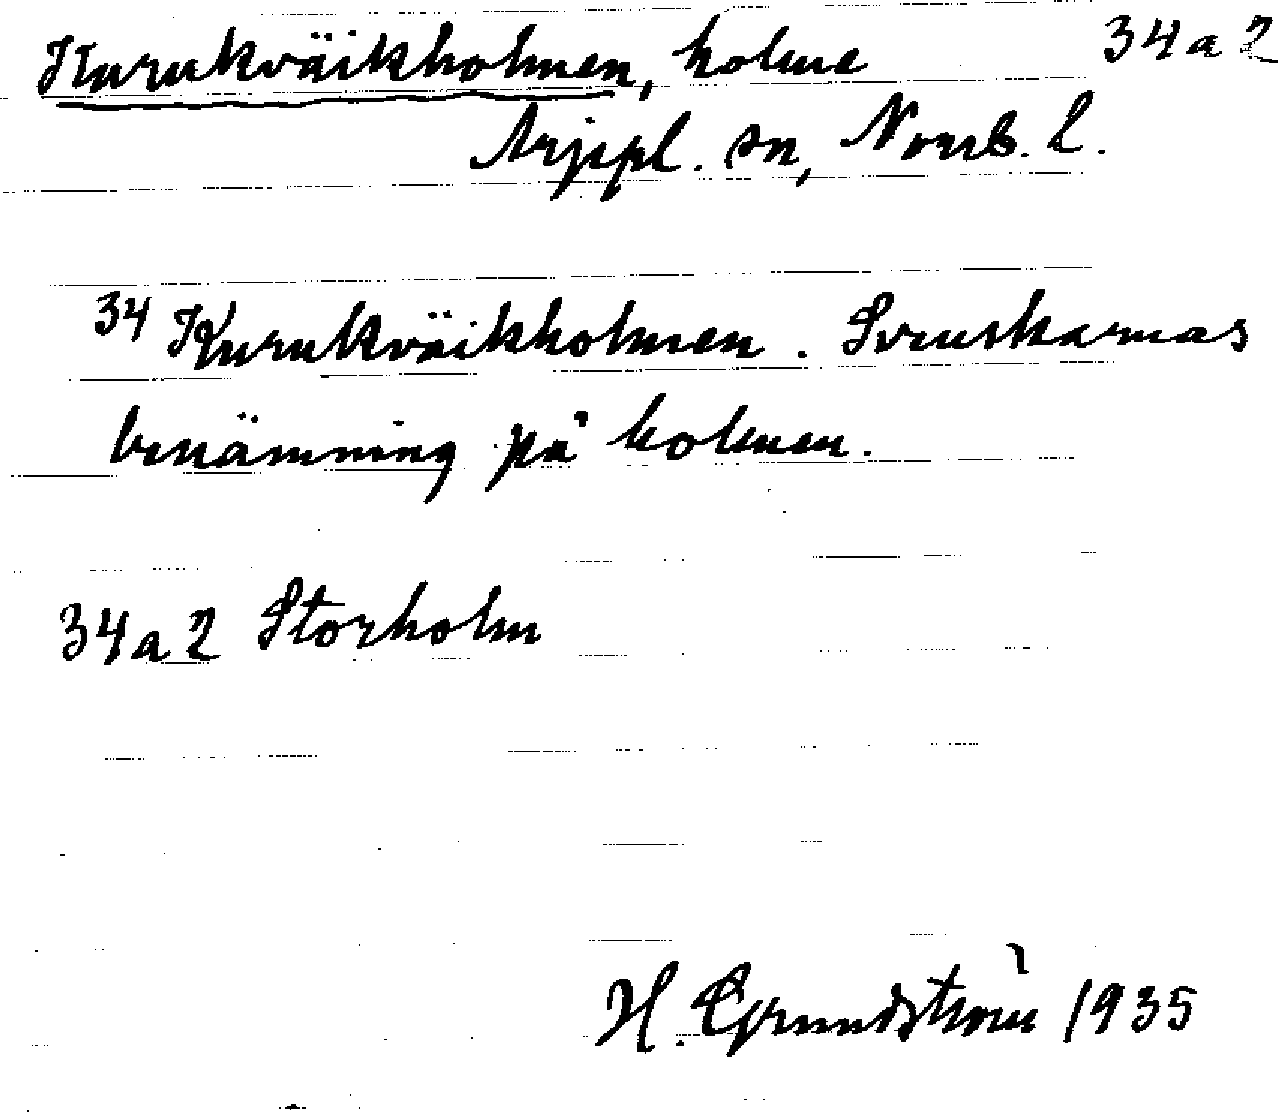 Kurukväikholmen, holme 34a2
Arjepl. sn, Norrb. l.
34 Kurukväikholmen. Svenskarnas
benämning på holmen.
34a2 Storholm
H. Grundström 1935